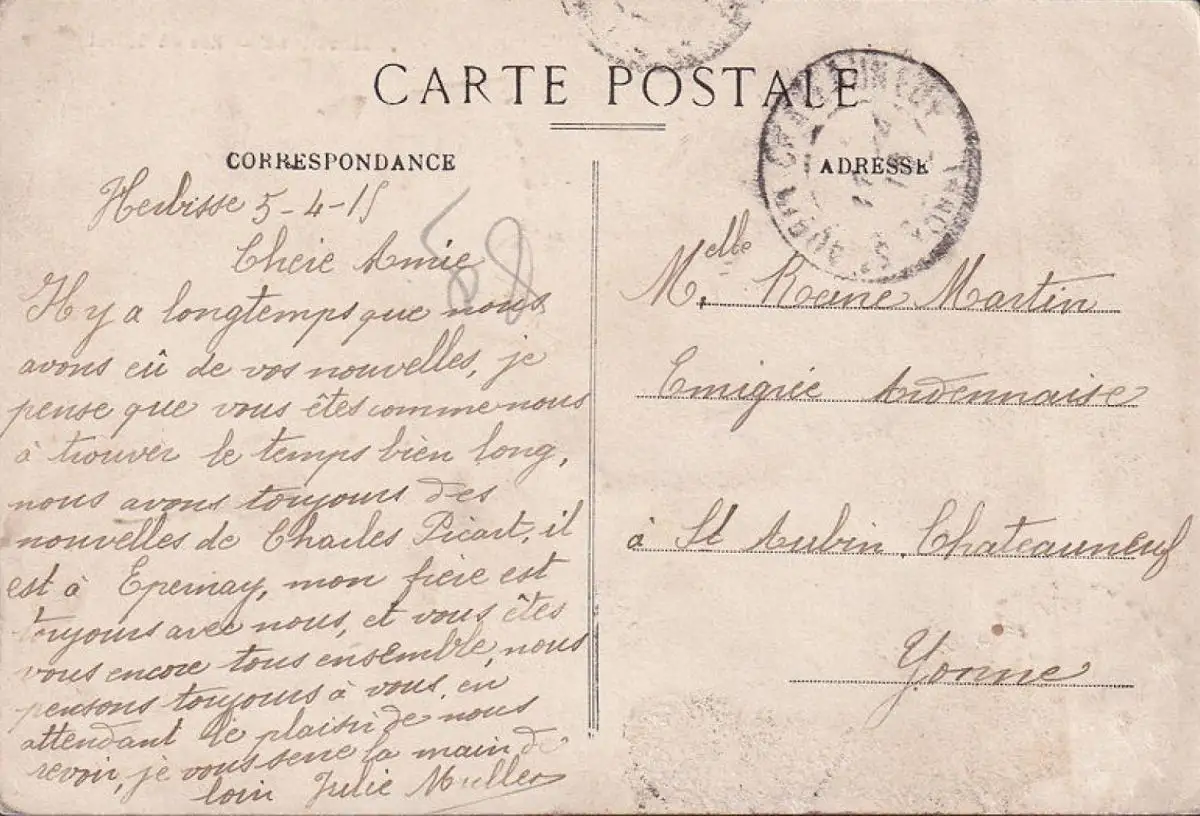 CARTE POSTALE
CORRESPONDANCE
ADRESSE
Herbisse 5-4-15
Chère Amie
Il y a longtemps que nous
avons eû de vos nouvelles, je
pense que vous êtes comme nous
à trouver le temps bien long,
nous avons toujours des
nouvelles de Charles Picart, il
est à Epernay, mon frère est
toujours avec nous, et vous êtes
vous encore tous ensemble, nous
pensons toujours à vous, en
attendant le plaisir de nous
revoir, je vous serre la main de
loin Julie Muller
Melle Reine Martin
Emigrée Ardennaise
à St Aubin, Chateauneuf
Yonne